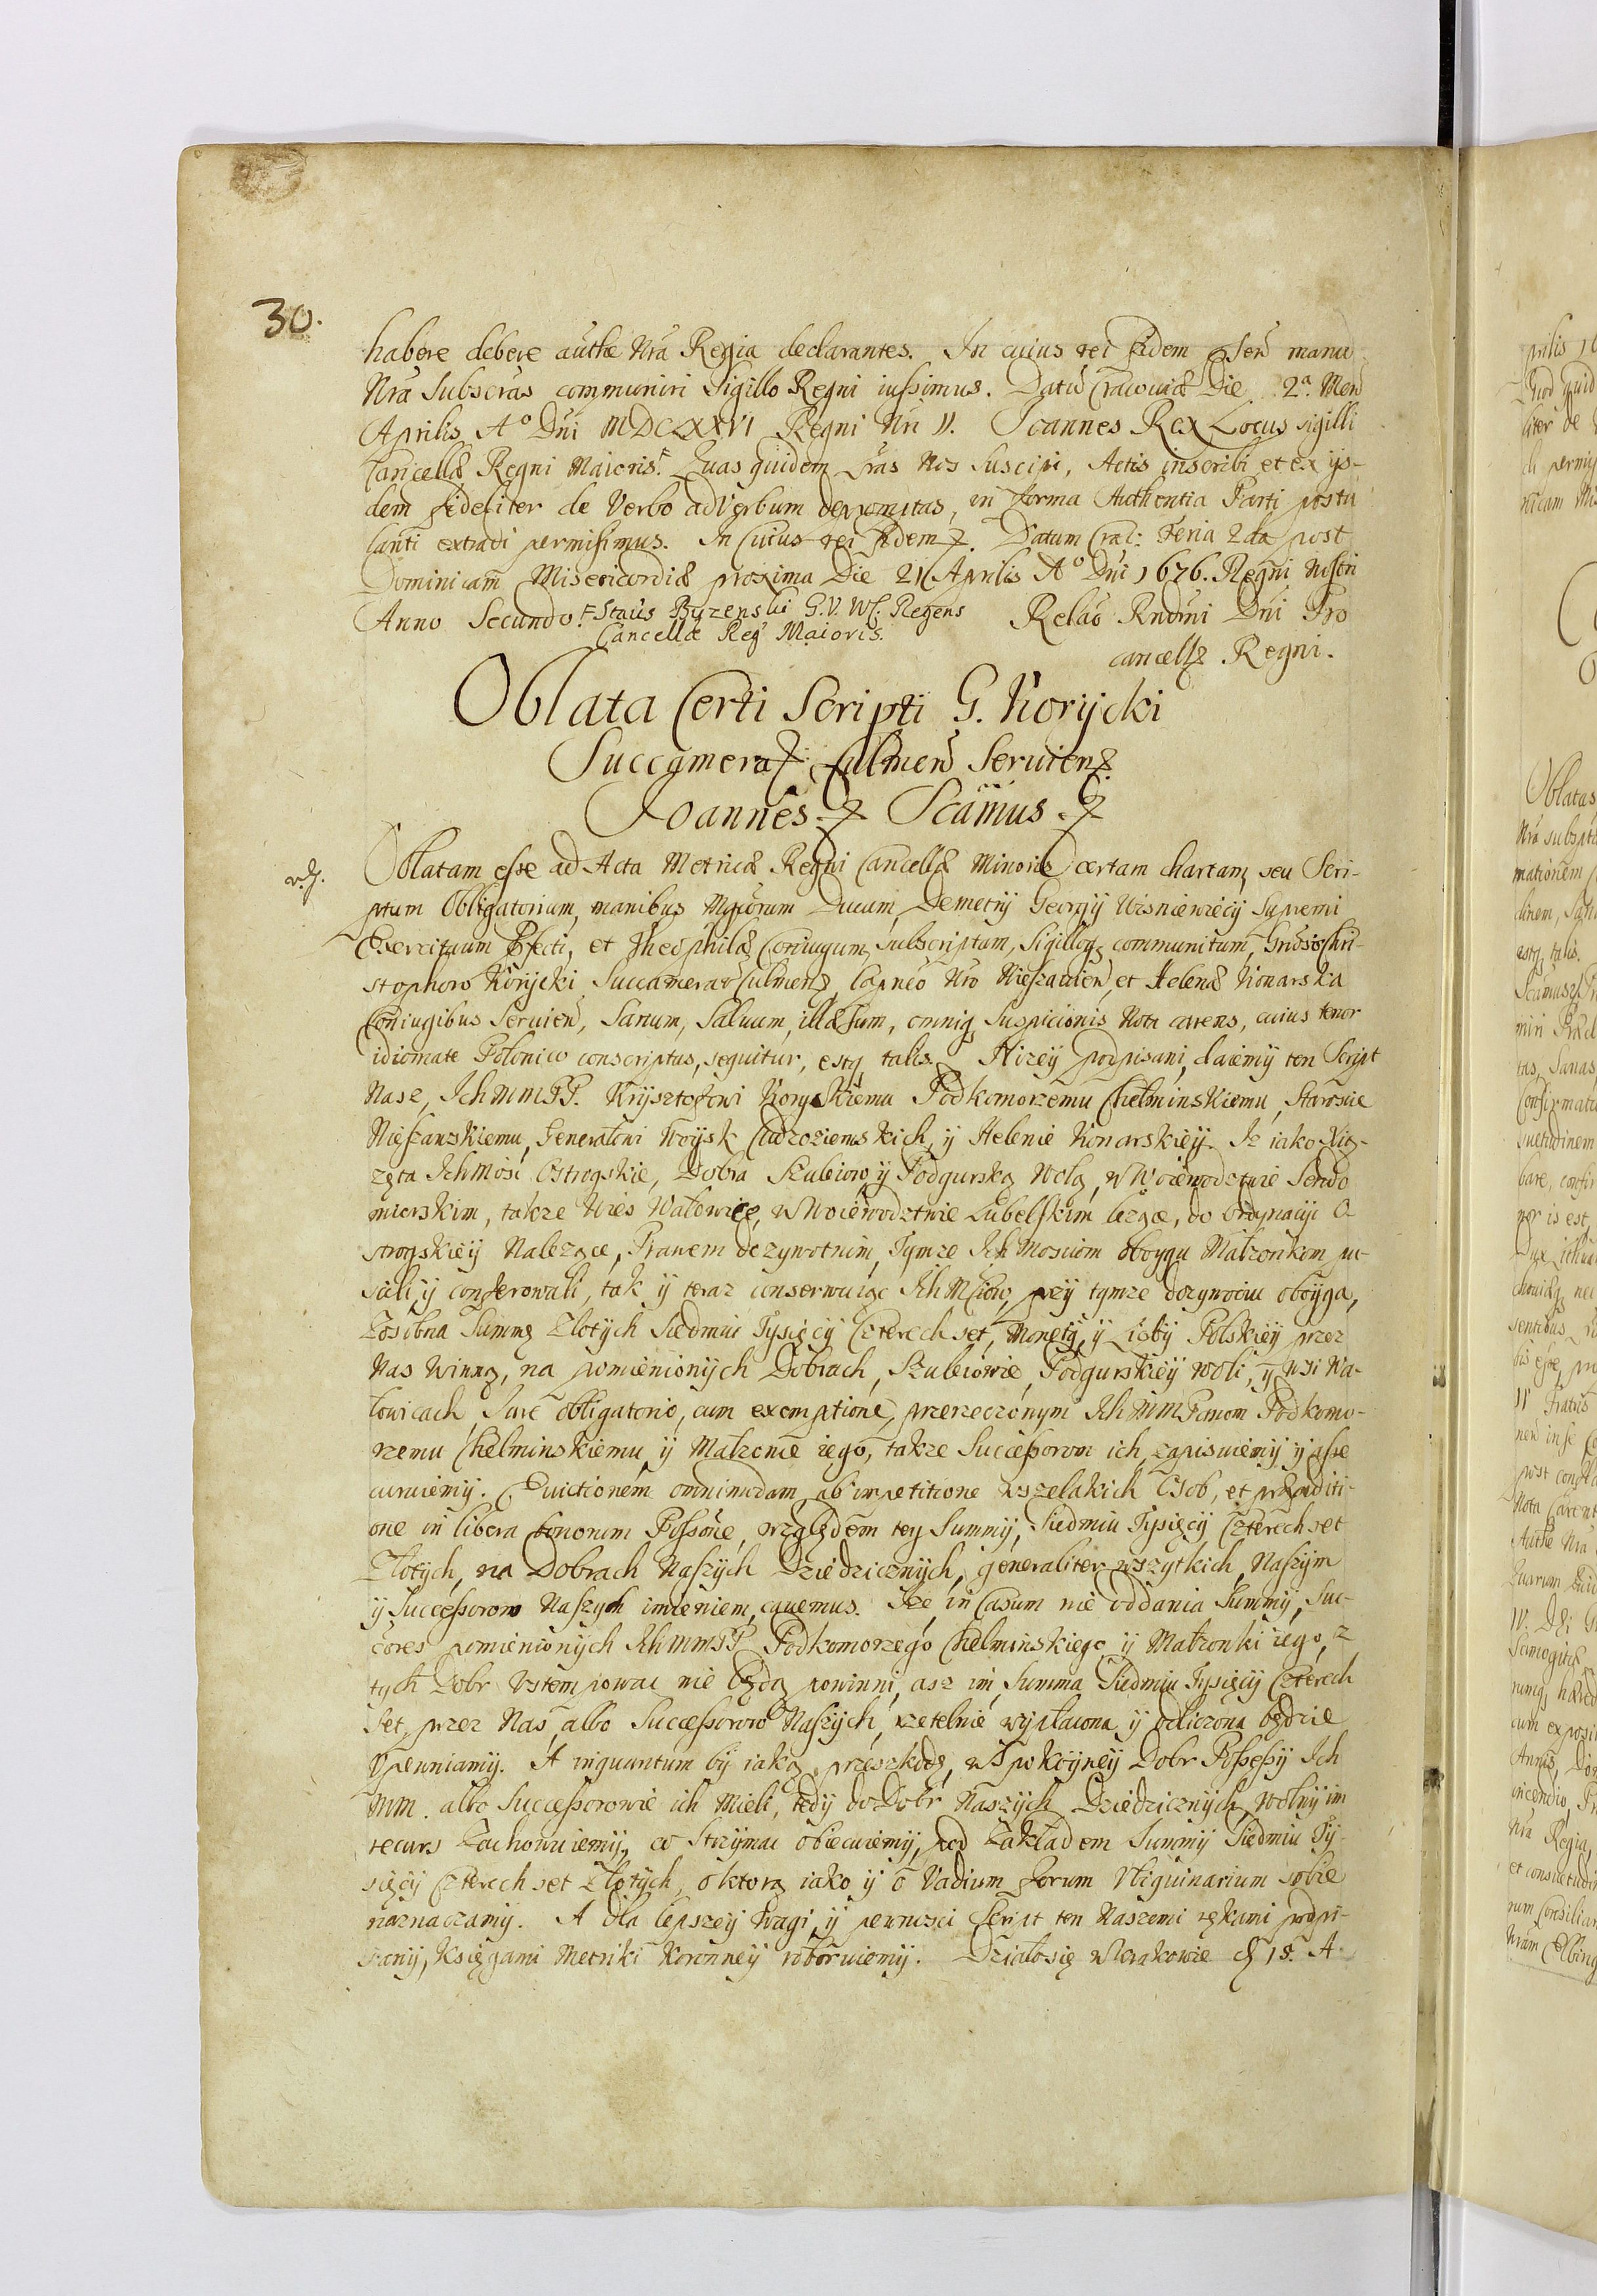 30.
habere debere authe Nra Regia declarantes. In cuius rei fidem pñsen manu
Nra Subscras communiri Sigillo Regni iussimus. Datu Cracoviæ Die 2ª Men
Aprilis Aº Dni MDCLXXVI Regni Nri II. Joannes Rex Locus sigilli
Cancellæ Regni Maioris. Quas quidem Lras Nos Suscipi, Actis inscribi et ex ijs-
dem fideliter de Verbo ad Verbum depromptas, in forma Authentia Parti postu
lanti extradi permisimus. In Cuius rei fidem. Datum Crac: Feria 2da post
Dominicam Misericordiæ proxima Die 21 Aprilis Aº Dni 1676. Regni Nostri
Anno Secundo. Staus Byzenski G.V.W. Regens
Cancellæ Reg Maioris.
Relao Rndmi Dni Pro
cancell Regni.
Oblata Certi Scripti G. Korijcki
Succamera Culmen Seruien
Joannes Scamus
Oblatam esse ad Acta Metricæ Regni Cancellæ Minoris certam chartam seu Scri-
ptum Obligatorium, manibus Mgcorum Ducum Demetrij Georgij Wisniewiecij Supremi
Exercituum Pfecti, et Theophilæ Coniugum Subscriptam, Sigillisq communitum, Gnoso Chri-
stophoro Korijcki Succamerao Culmen, Capneo Nro Nieszawien, et Helenæ Konarska
Coniugibus Seruien, Sanum, Saluum, illæsum, omniq Suspicionis Nota carens, cuius tenor
idiomate Polonico conscriptus, sequitur, estq talis. Nizeÿ podpisani, daiemÿ ten Script
Nasz, Ich MM PP. Krÿsztofowi Korÿckiemu Podkomorzemu Chełminskiemu, Staroscie
Nieszawskiemu, Generałowi Woÿsk Cudzoziemskich, ÿ Helenie Konarskieÿ. Iz iako Xią-
zęta Ichmosc Ostrogskie, Dobra Szubiow ÿ Podgurską Wolą, w Woiewodztwie Sendo
mierskim, takze Wies Wałowice, w Woiewodztwie Lubelskim lezące, do Ordynacÿi O-
strogskieÿ Nalezące, Prawem dozÿwotnim, Tÿmze Ich Mosciom oboygu Małzonkom pu-
scili ÿ conferowali, tak ÿ teraz conserwuiąc Ich Mciow, przÿ tÿmze dozÿwociu oboÿga,
Zosobna Summę Złotÿch Siedmiu Tÿsięcÿ Czterech set, Monetÿ ÿ Liczbÿ Polskieÿ przez
Nas Winną, na pomienionÿch Dobrach, Szubiowie, Podgurskieÿ Woli, ÿ Wsi Wa-
łowicach Iure obligatorio, cum exemptione, przerzeczonÿm Ich MM Panom Podkomo-
rzemu Chełminskiemu ÿ Małzonce iego, takze Successorom ich zapisuiemÿ ÿ asse
curuiemÿ. Euictionem omnimodam ab impetitione wszelakich Osob, et
one in libera bonorum Possone, względem teÿ Summÿ, Siedmiu Tÿsięcÿ Czterech set
Złotÿch, na Dobrach Naszÿch Dziedzicznÿch, generaliter wszytkich Naszÿm
ÿ Successorow Naszÿch imieniem, cauemus. Ize in Casum nie oddania Summÿ, Suc-
cores pomienionÿch Ich MM PP Podkomorzego Chełminskiego ÿ Małzonki iego, z
tych Dobr Vstempowac nie będą powinni, asz im Summa Siedmiu Tÿsięcÿ Czterech
Set, przez Nas, albo Successorow Naszÿch, rzetelnie wÿpłacona ÿ odliczona będzie
Vpewniamÿ. A inquantum bÿ iaką przeszkodę, w Spokoÿneÿ Dobr Possessÿi Ich
MM. albo Successorowie ich Mieli, tedÿ do Dobr Naszÿch Dziedzicznÿch, Wolnÿ im
recurs Zachowuiemÿ, co Strzÿmac obiecuiemÿ, pod Zakładem Summÿ Siedmiu Tÿ-
sięcÿ Czterech set Złotÿch, o ktorą iako ÿ o Vadium forum Vbiquinarium sobie
naznaczamÿ. A dla lepszeÿ Wagi, ÿ pewnosci Script ten Naszemi rękami podpi-
sanÿ, Księgami Metriki Koronneÿ roboruiemÿ. Działo się w Krakowie d 18. A